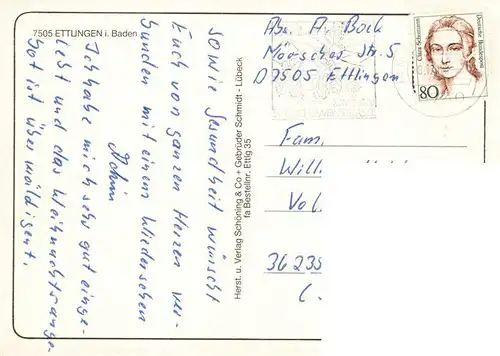 7505 ETTLINGEN i. Baden
sowie Gesundheit wünscht
Euch von ganzen Herzen ver-
bunden mit einem Wiedersehen
Ich habe mich sehr gut einge-
lebt und das Weihnachtsange-
bot ist überwältigent.
Herst. u. Verlag Schöning & Co + Gebrüder Schmidt - Lübeck
fa Bestellnr. Ettlg 35
Abs. A. Bock
Mörscher Str. 5
D 7505 Ettlingen
Clara Schumann
Deutsche Bundespost
80
Fam.
Will
Vol
36235